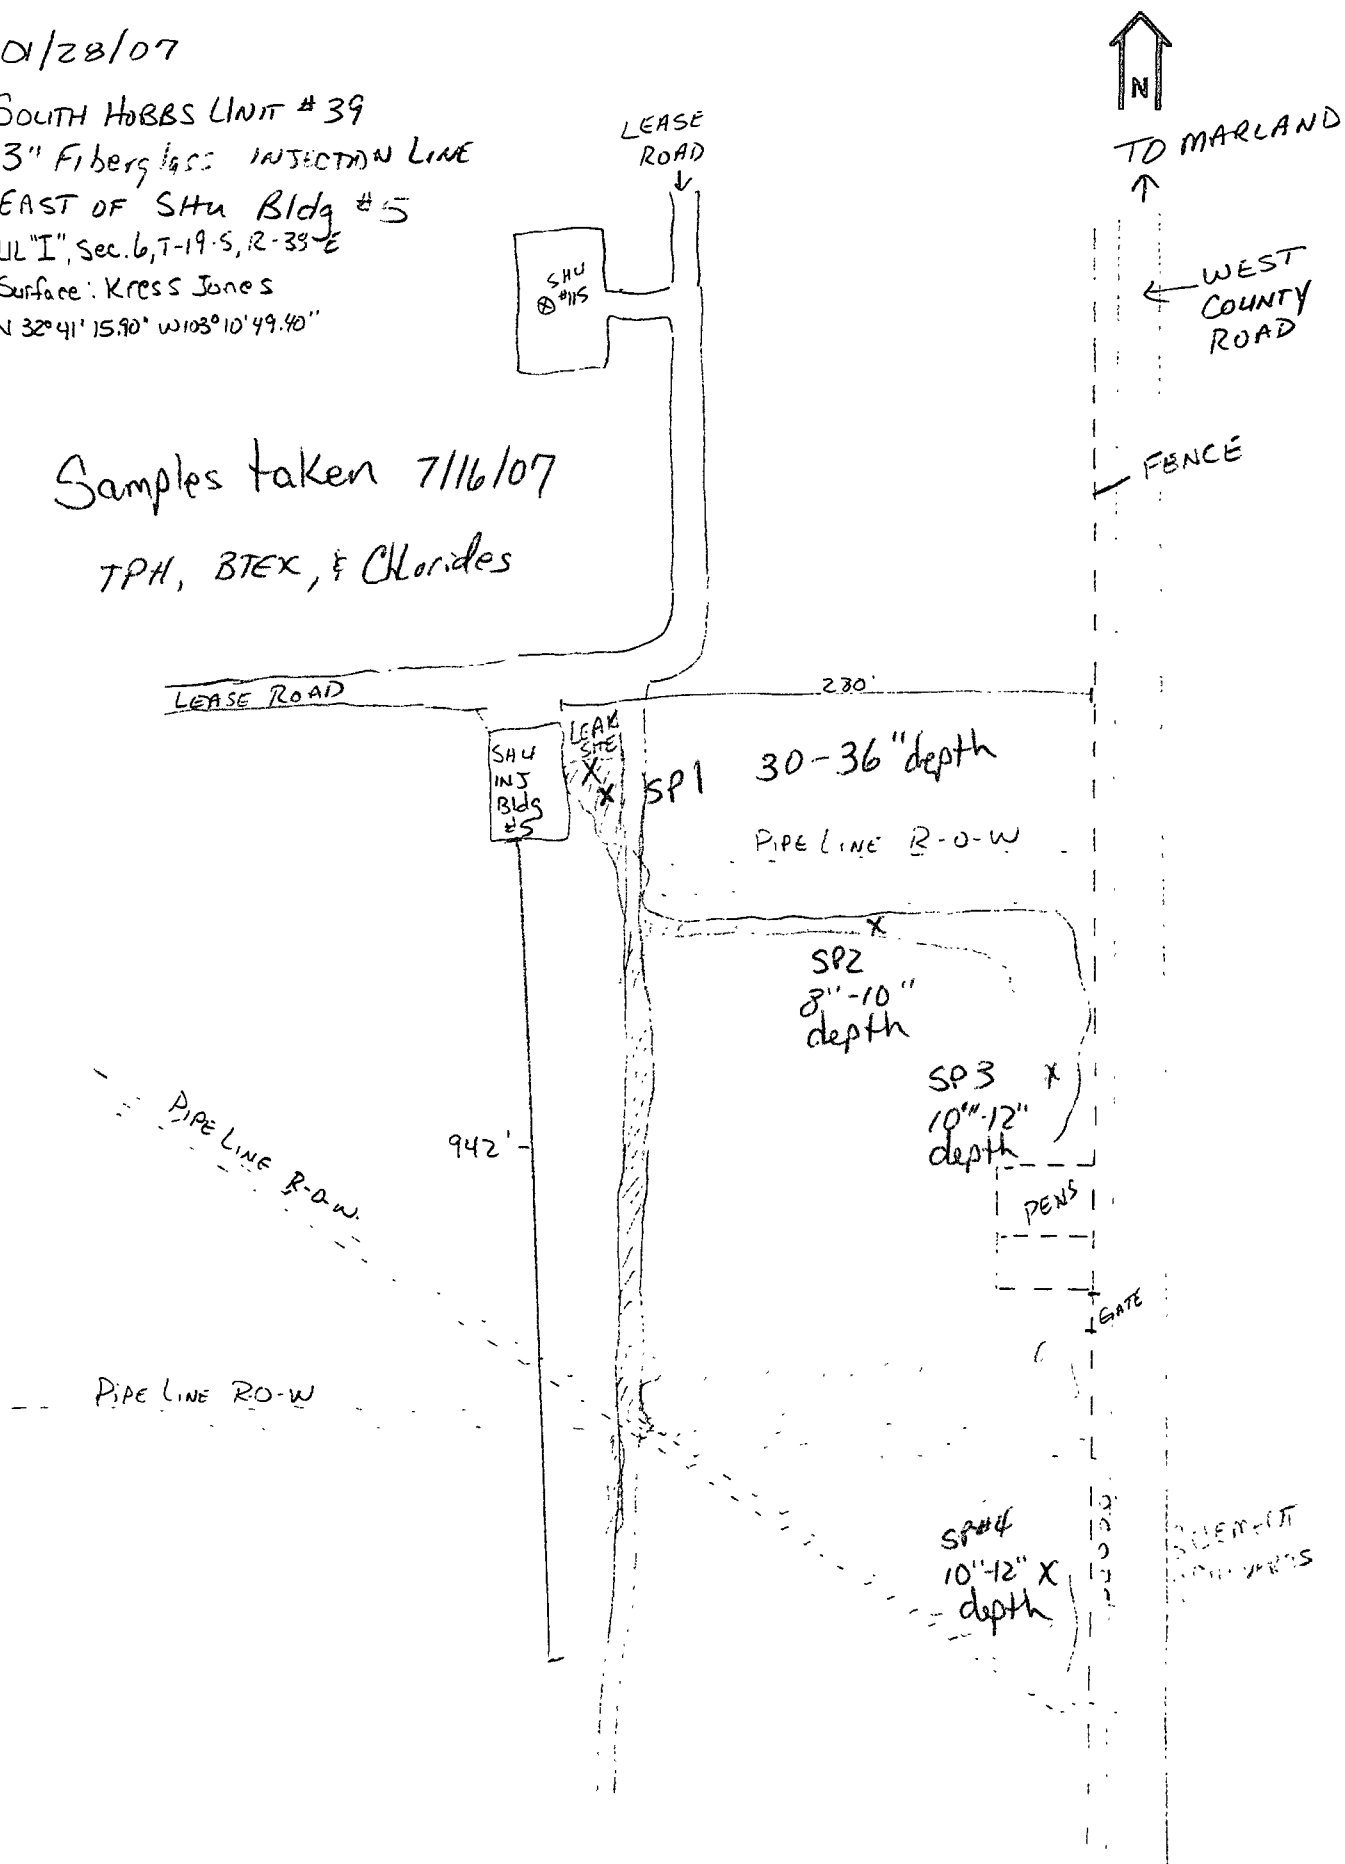 01/28/07
SOUTH HOBBS UNIT #39
3" Fiberglass INJECTION LINE
EAST OF SHU Bldg #5
UL "I", Sec. 6, T-19-S, R-38-E
Surface: Kress Jones
N 32°41'15.90" W103°10'49.40"
N
TO MARLAND
LEASE
ROAD
SHU
#115
WEST
COUNTY
ROAD
FENCE
Samples taken 7/16/07
TPH, BTEX, & Chlorides
LEASE ROAD
230'
LEAK
SITE
SHU
INJ
Bldg
#5
X
X
SP1
30-36" depth
PIPE LINE R-O-W
X
SP2
8"-10"
depth
SP3 X
10"-12"
depth
PIPE LINE R-O-W.
942'
PENS
GATE
PIPE LINE R-O-W
SP#4
10"-12" X
depth